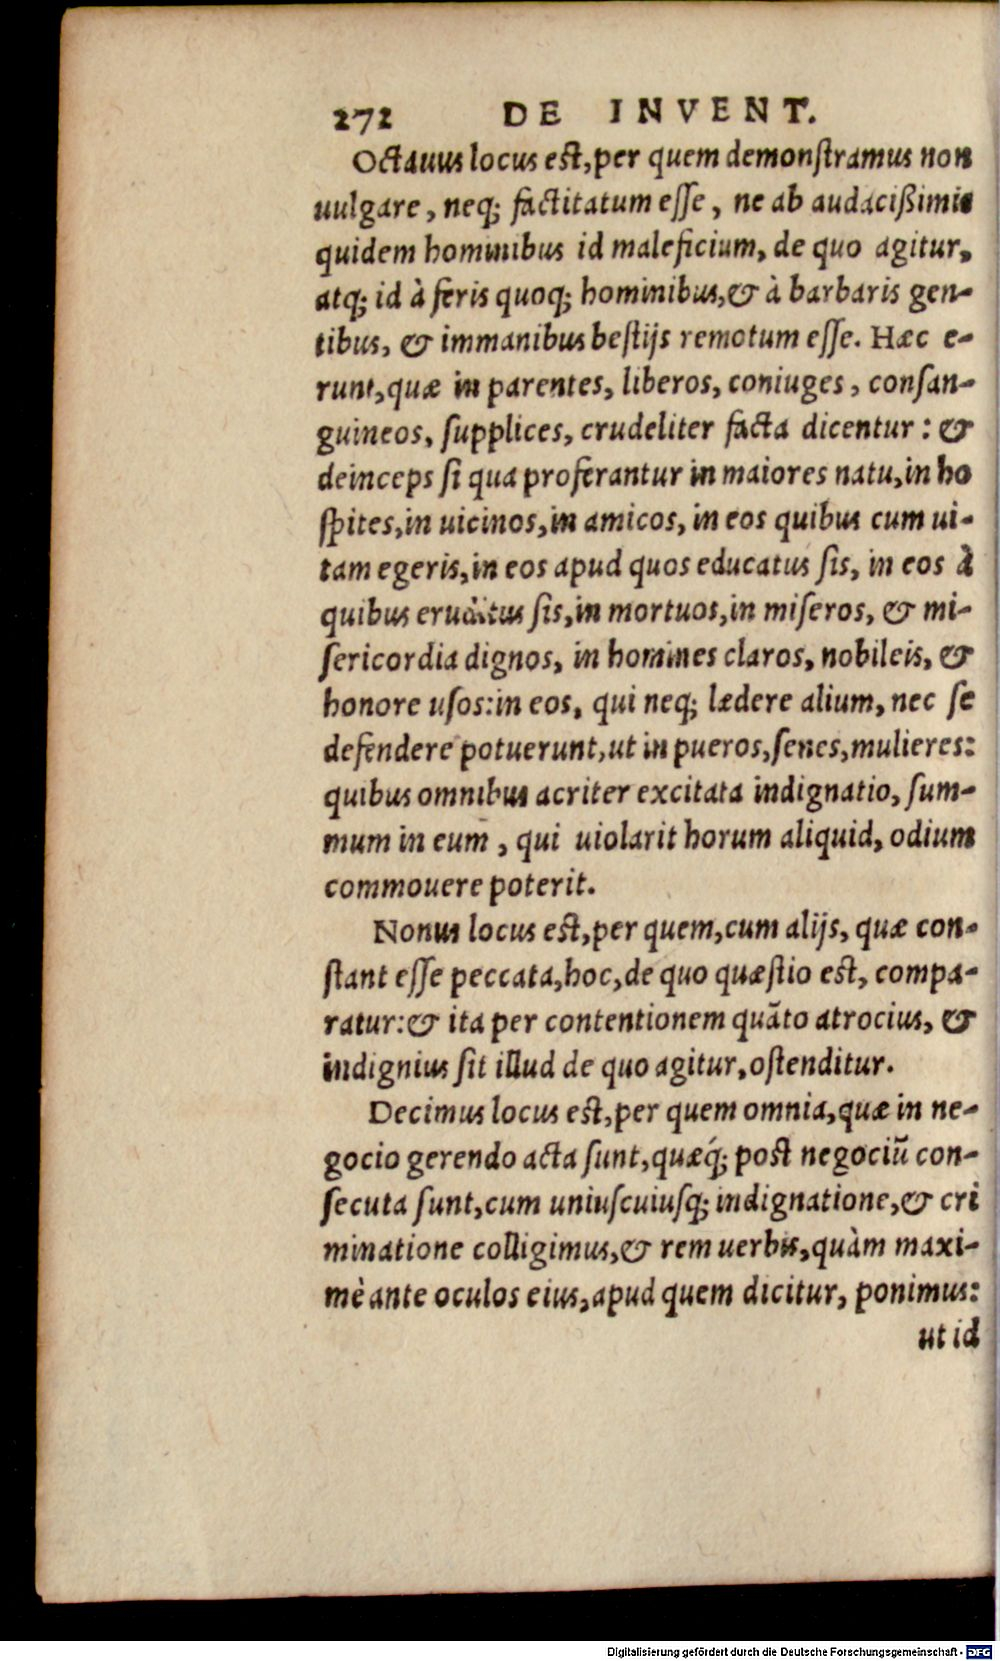 272 DE INVENT.
Octauus locus est, per quem demonstramus non
uulgare, neq; factitatum esse, ne ab audacißimis
quidem hominibus id maleficium, de quo agitur,
atq; id à feris quoq; hominibus, & à barbaris gen-
tibus, & immanibus bestijs remotum esse. Hæc e-
runt, quæ in parentes, liberos, coniuges, consan-
guineos, supplices, crudeliter facta dicentur: &
deinceps si qua proferantur in maiores natu, in ho
spites, in uicinos, in amicos, in eos quibus cum ui-
tam egeris, in eos apud quos educatus sis, in eos à
quibus eruditus sis, in mortuos, in miseros, & mi-
sericordia dignos, in homines claros, nobileis, &
honore usos: in eos, qui neq; lædere alium, nec se
defendere potuerunt, ut in pueros, senes, mulieres:
quibus omnibus acriter excitata indignatio, sum-
mum in eum, qui uiolarit horum aliquid, odium
commouere poterit.
Nonus locus est, per quem, cum alijs, quæ con-
stant esse peccata, hoc, de quo quæstio est, compa-
ratur: & ita per contentionem quãto atrocius, &
indignius sit illud de quo agitur, ostenditur.
Decimus locus est, per quem omnia, quæ in ne-
gocio gerendo acta sunt, quæq́; post negociũ con-
secuta sunt, cum uniuscuiusq; indignatione, & cri
minatione colligimus, & rem uerbis, quàm maxi-
mè ante oculos eius, apud quem dicitur, ponimus:
ut id
Digitalisierung gefördert durch die Deutsche Forschungsgemeinschaft - DFG